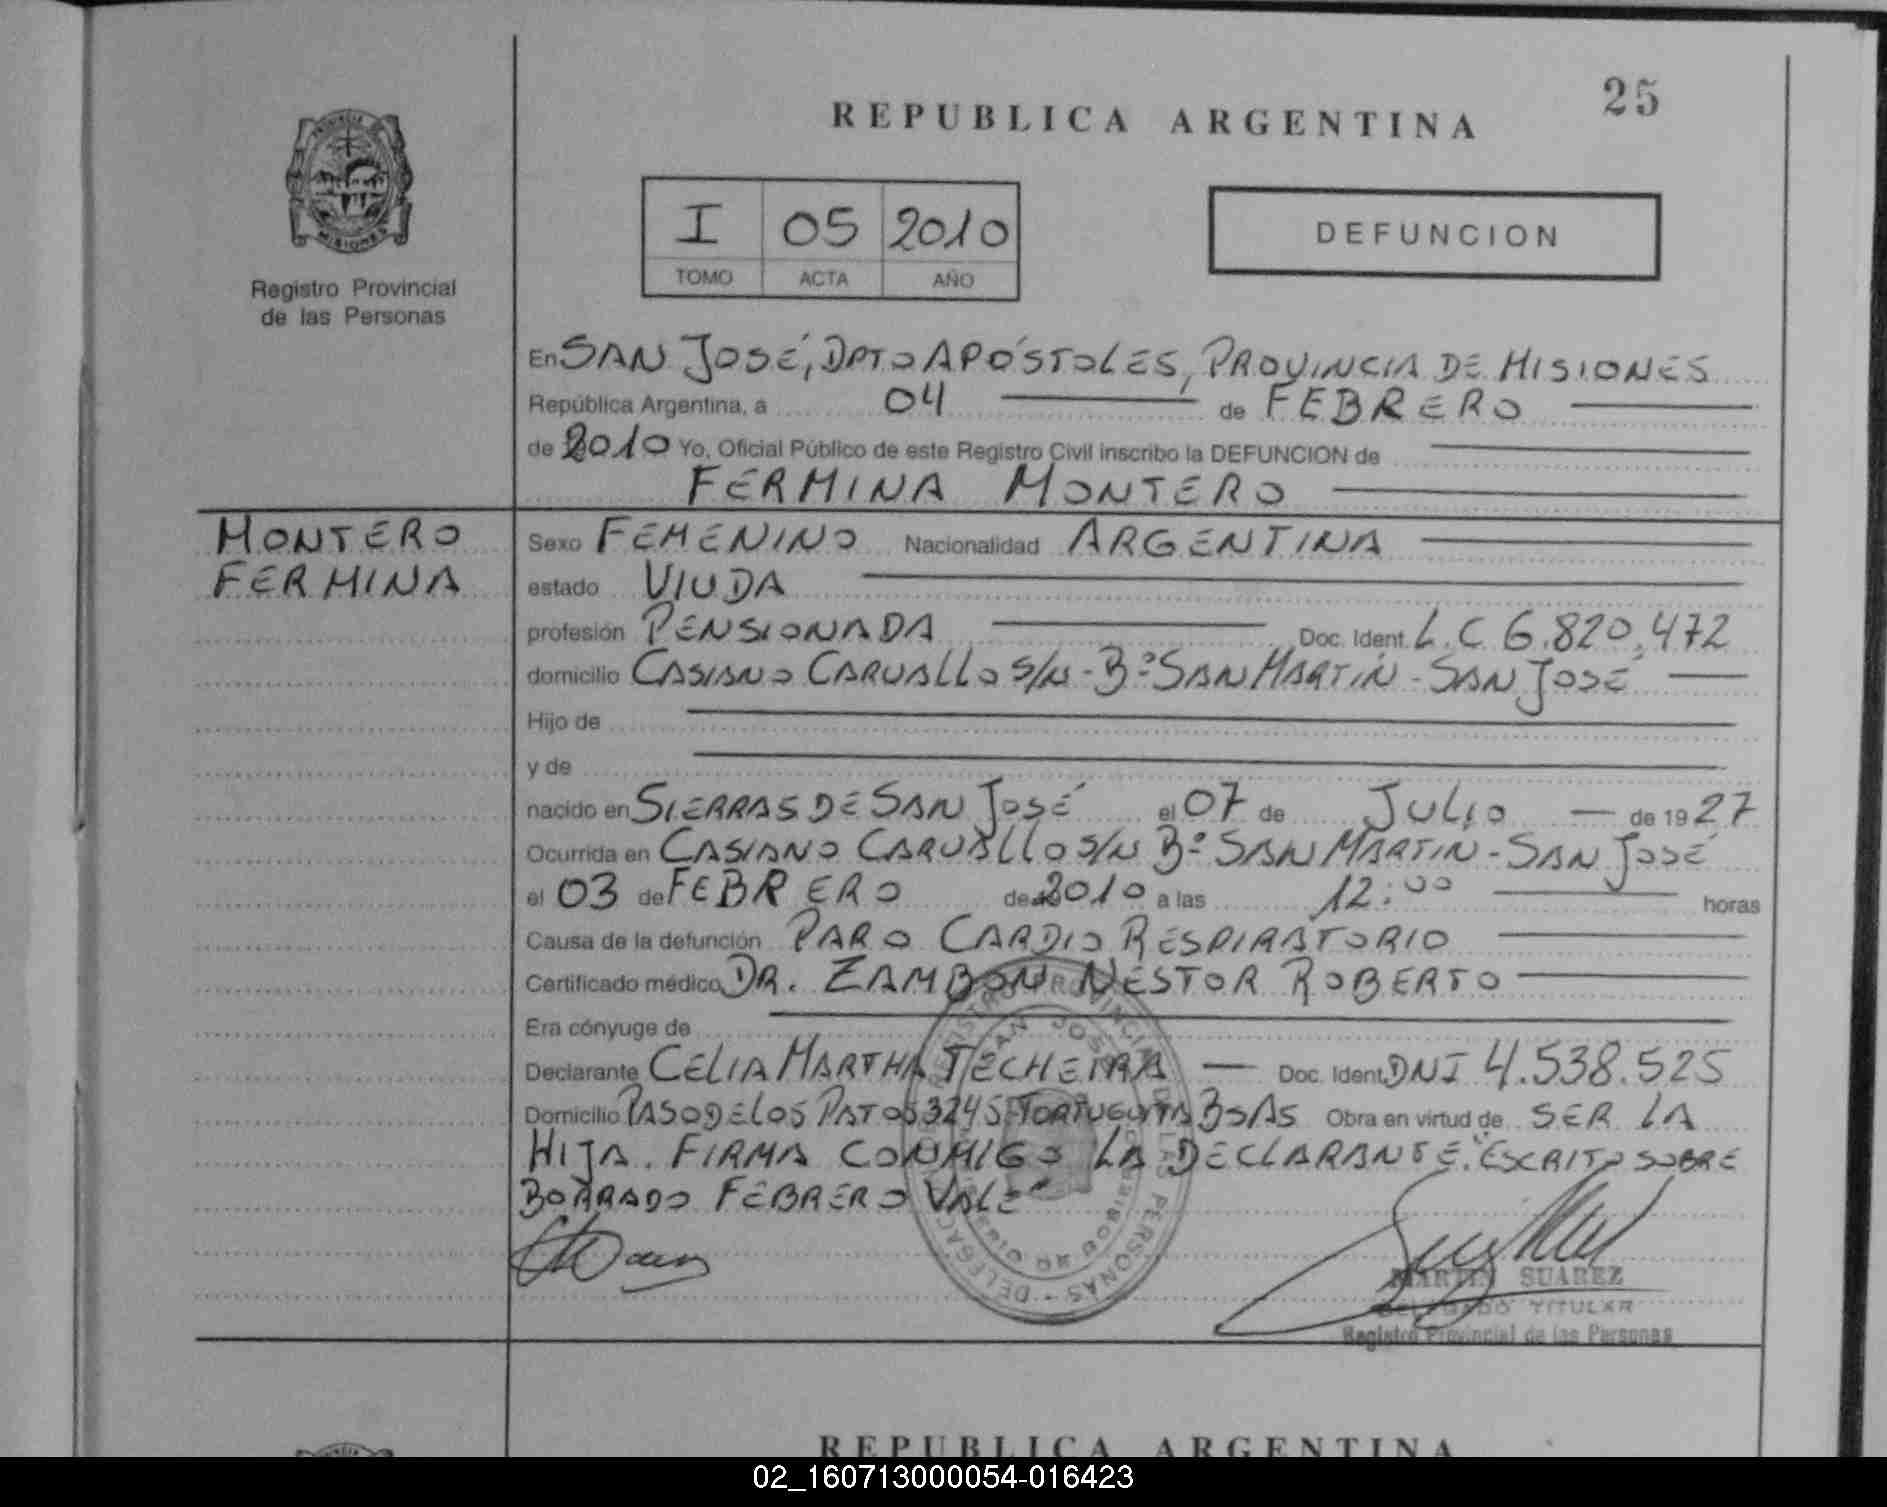 25
REPUBLICA ARGENTINA
PROVINCIA DE
MISIONES
Registro Provincial
de las Personas
I 05 2010
TOMO ACTA AÑO
DEFUNCION
En SAN JOSÉ, DPTO APÓSTOLES, PROVINCIA DE MISIONES
República Argentina, a 04 de FEBRERO
de 2010 Yo, Oficial Público de este Registro Civil inscribo la DEFUNCION de
FERMINA MONTERO
MONTERO
FERMINA
Sexo FEMENINO Nacionalidad ARGENTINA
estado VIUDA
profesión PENSIONADA Doc. Ident. L.C 6.820.472
domicilio CASIANO CARVALLO S/N - Bº SAN MARTIN - SAN JOSÉ
Hijo de
y de
nacido en SIERRAS DE SAN JOSÉ el 07 de JULIO de 1927
Ocurrida en CASIANO CARVALLO S/N Bº SAN MARTIN - SAN JOSÉ
el 03 de FEBRERO de 2010 a las 12:00 horas
Causa de la defunción PARO CARDIO RESPIRATORIO
Certificado médico DR. ZAMBON NESTOR ROBERTO
Era cónyuge de
Declarante CELIA MARTHA TECHEIRA Doc. Ident DNI 4.538.525
Domicilio PASO DE LOS PATOS 3245 TORTUGUITA BS AS Obra en virtud de SER LA
HIJA. FIRMA CONMIGO LA DECLARANTE. "ESCRITO SOBRE
BORRADO FEBRERO VALE"
REGISTRO PROVINCIAL DE LAS PERSONAS - DELEGACION
SAN JOSE
MARTIN SUAREZ
DELEGADO TITULAR
Registro Provincial de las Personas
REPUBLICA ARGENTINA
02_160713000054-016423